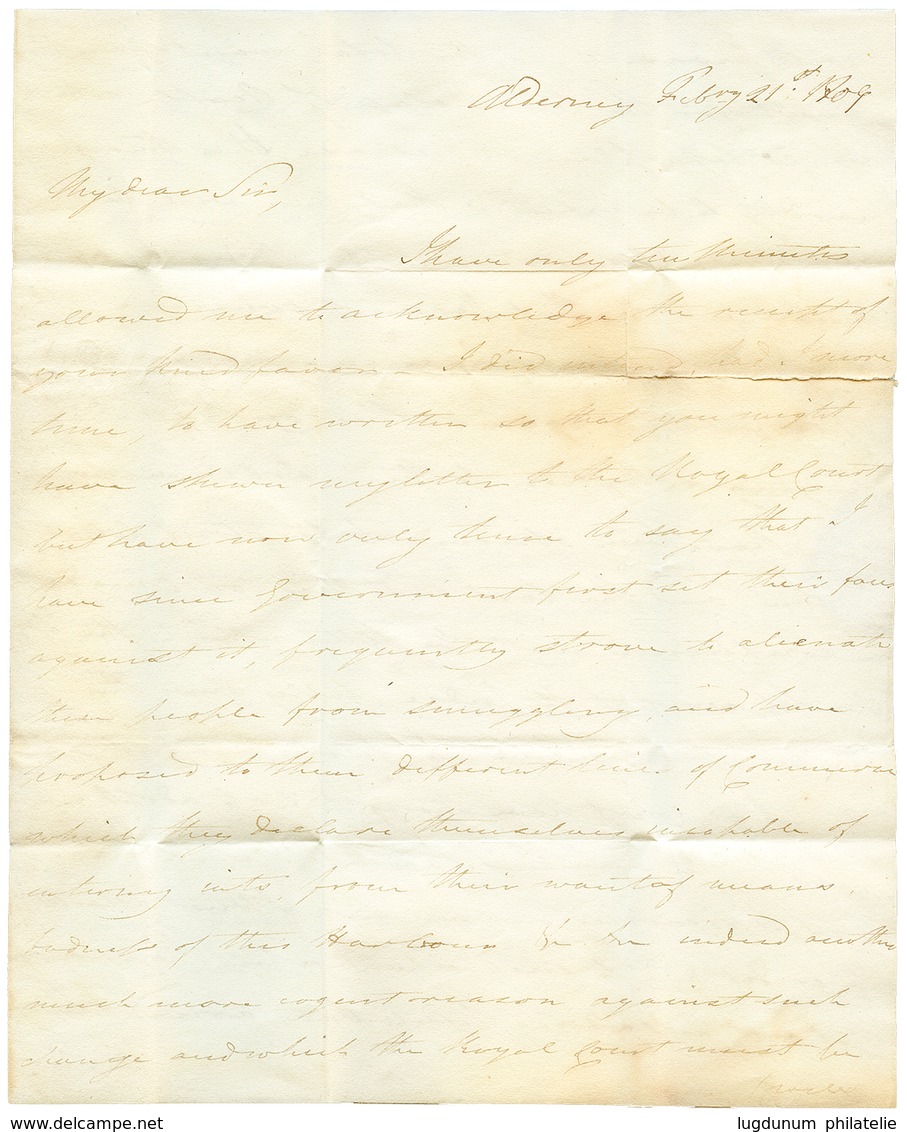 Alderney Febry 21st. 1809
My dear Sir,
I have only ten Minutes
allowed me to acknowledge the receipt of
your kind favor – I did intend, had I more
time, to have written so that you might
have shewn my letter to the Royal Court
but have now only time to say that I
have since Government first set their face
against it, frequently strove to alienate
these people from smuggling, and have
proposed to them different lines of Commerce
which they declare themselves incapable of
entering into, from their want of means,
badness of this Harbour &c &c indeed another
much more cogent reason against such
change and which the Royal Court must be
www.delcampe.net
lugdunum philatelie